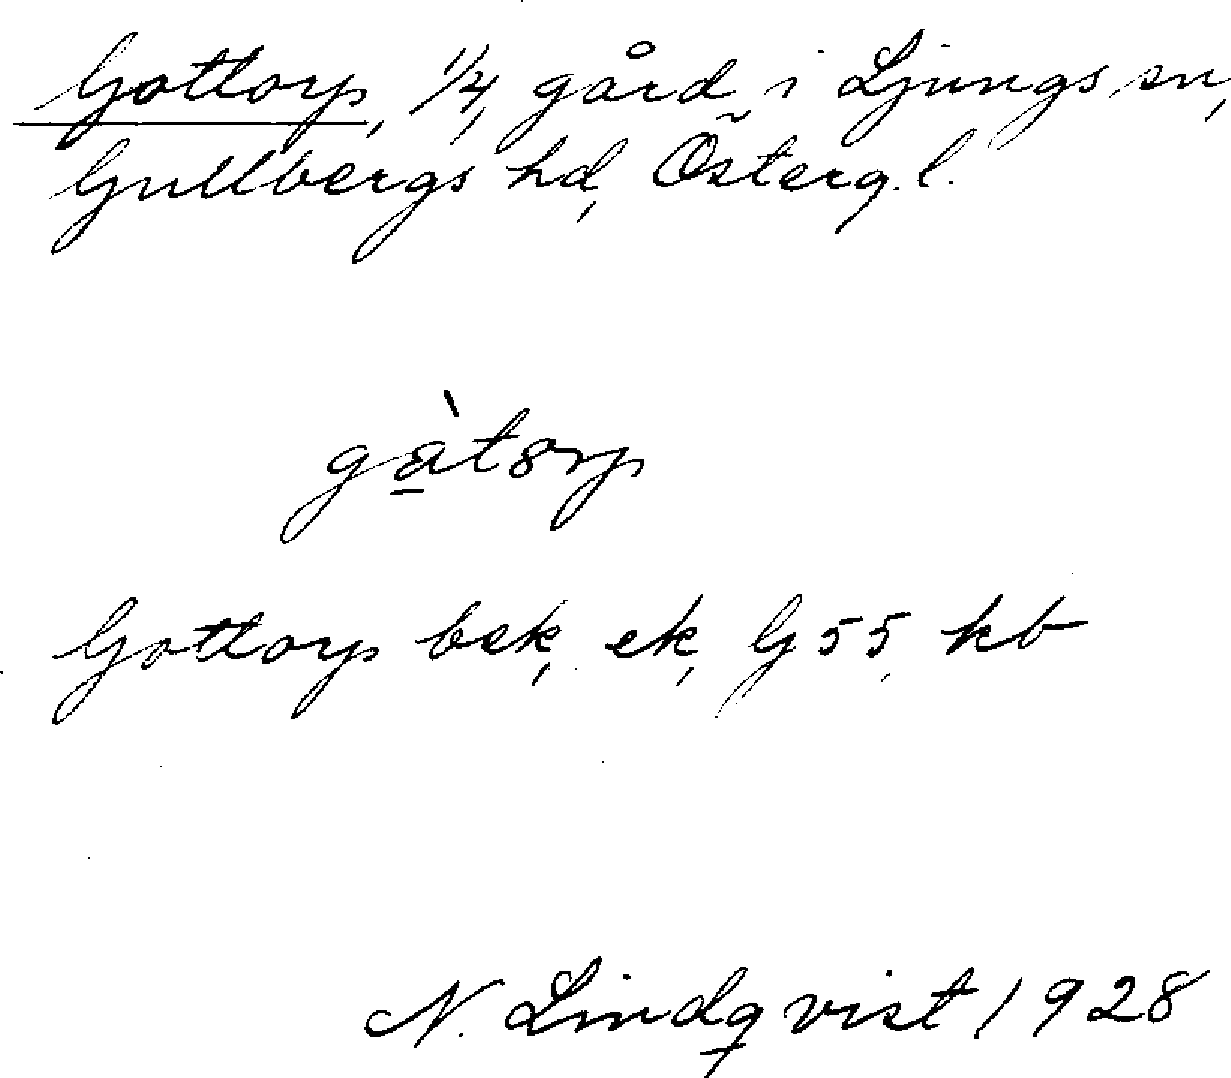 Gottorp, 1/4, gård i Ljungs sn,
Gullbergs hd, Österg. l.
gàtorp
Gottorp bek, ek, G 55, kb
N. Lindqvist 1928